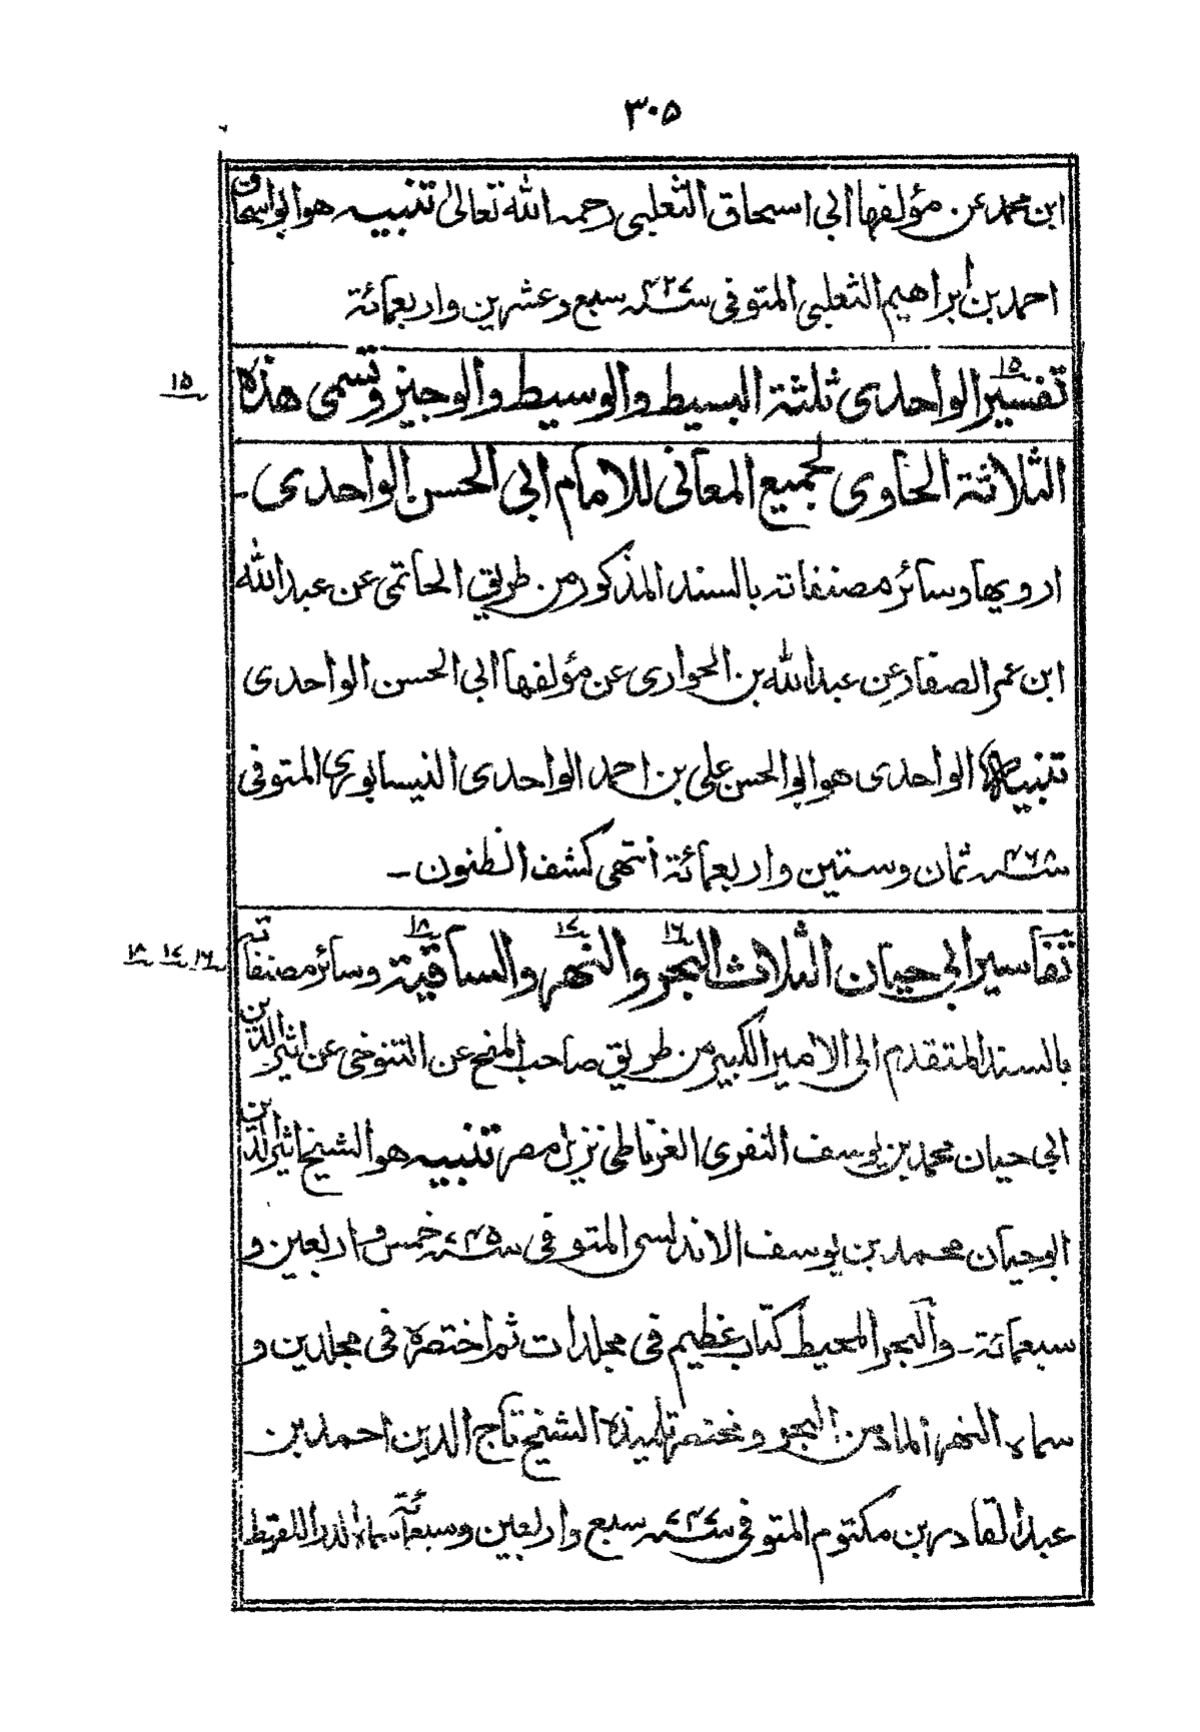 ٣٠٥
ابن محمد عن مؤلفها ابي اسحاق الثعلبي رحمه الله تعالى تنبيه هو ابو اسحاق
احمد بن ابراهيم الثعلبي المتوفى سنة ٤٢٧ سبع وعشرين واربعمائة
١٥
تفسير الواحدى ثلثة البسيط والوسيط والوجيز وتسمى هذه
١٥
الثلاثة الحاوى لجميع المعانى للامام ابى الحسن الواحدى ـ
ارويها وسائر مصنفاته بالسند المذكور من طريق الحاتمى عن عبد الله
ابن عمر الصفار عن عبد الله بن الحوارى عن مؤلفها ابى الحسن الواحدى
تنبيه الواحدى هو ابو الحسن على بن احمد الواحدى النيسابورى المتوفى
سنة ٤٦٨ ثمان وستين واربعمائة انتهى كشف الظنون ـ
١٦ ١٧ ١٨
تفاسير ابى حيان الثلاث البحر والنهر والساقية وسائر مصنفاته
١٦ ١٧ ١٨
بالسند المتقدم الى الامير الكبير من طريق صاحب المنح عن التنوخى عن اثير الدين
ابى حيان محمد بن يوسف النفرى الغرناطى نزيل مصر تنبيه هو الشيخ اثير الدين
ابو حيان محمد بن يوسف الاندلسى المتوفى سنة ٧٤٥ خمس واربعين و
سبعمائة ـ والبحر المحيط كتاب عظيم فى مجلدات ثم اختصره فى مجلدين و
سماه النهر الماد من البحر ومختصر تلميذه الشيخ تاج الدين احمد بن
عبد القادر بن مكتوم المتوفى سنة ٧٤٧ سبع واربعين وسبعمائة سماه الدر اللقيط